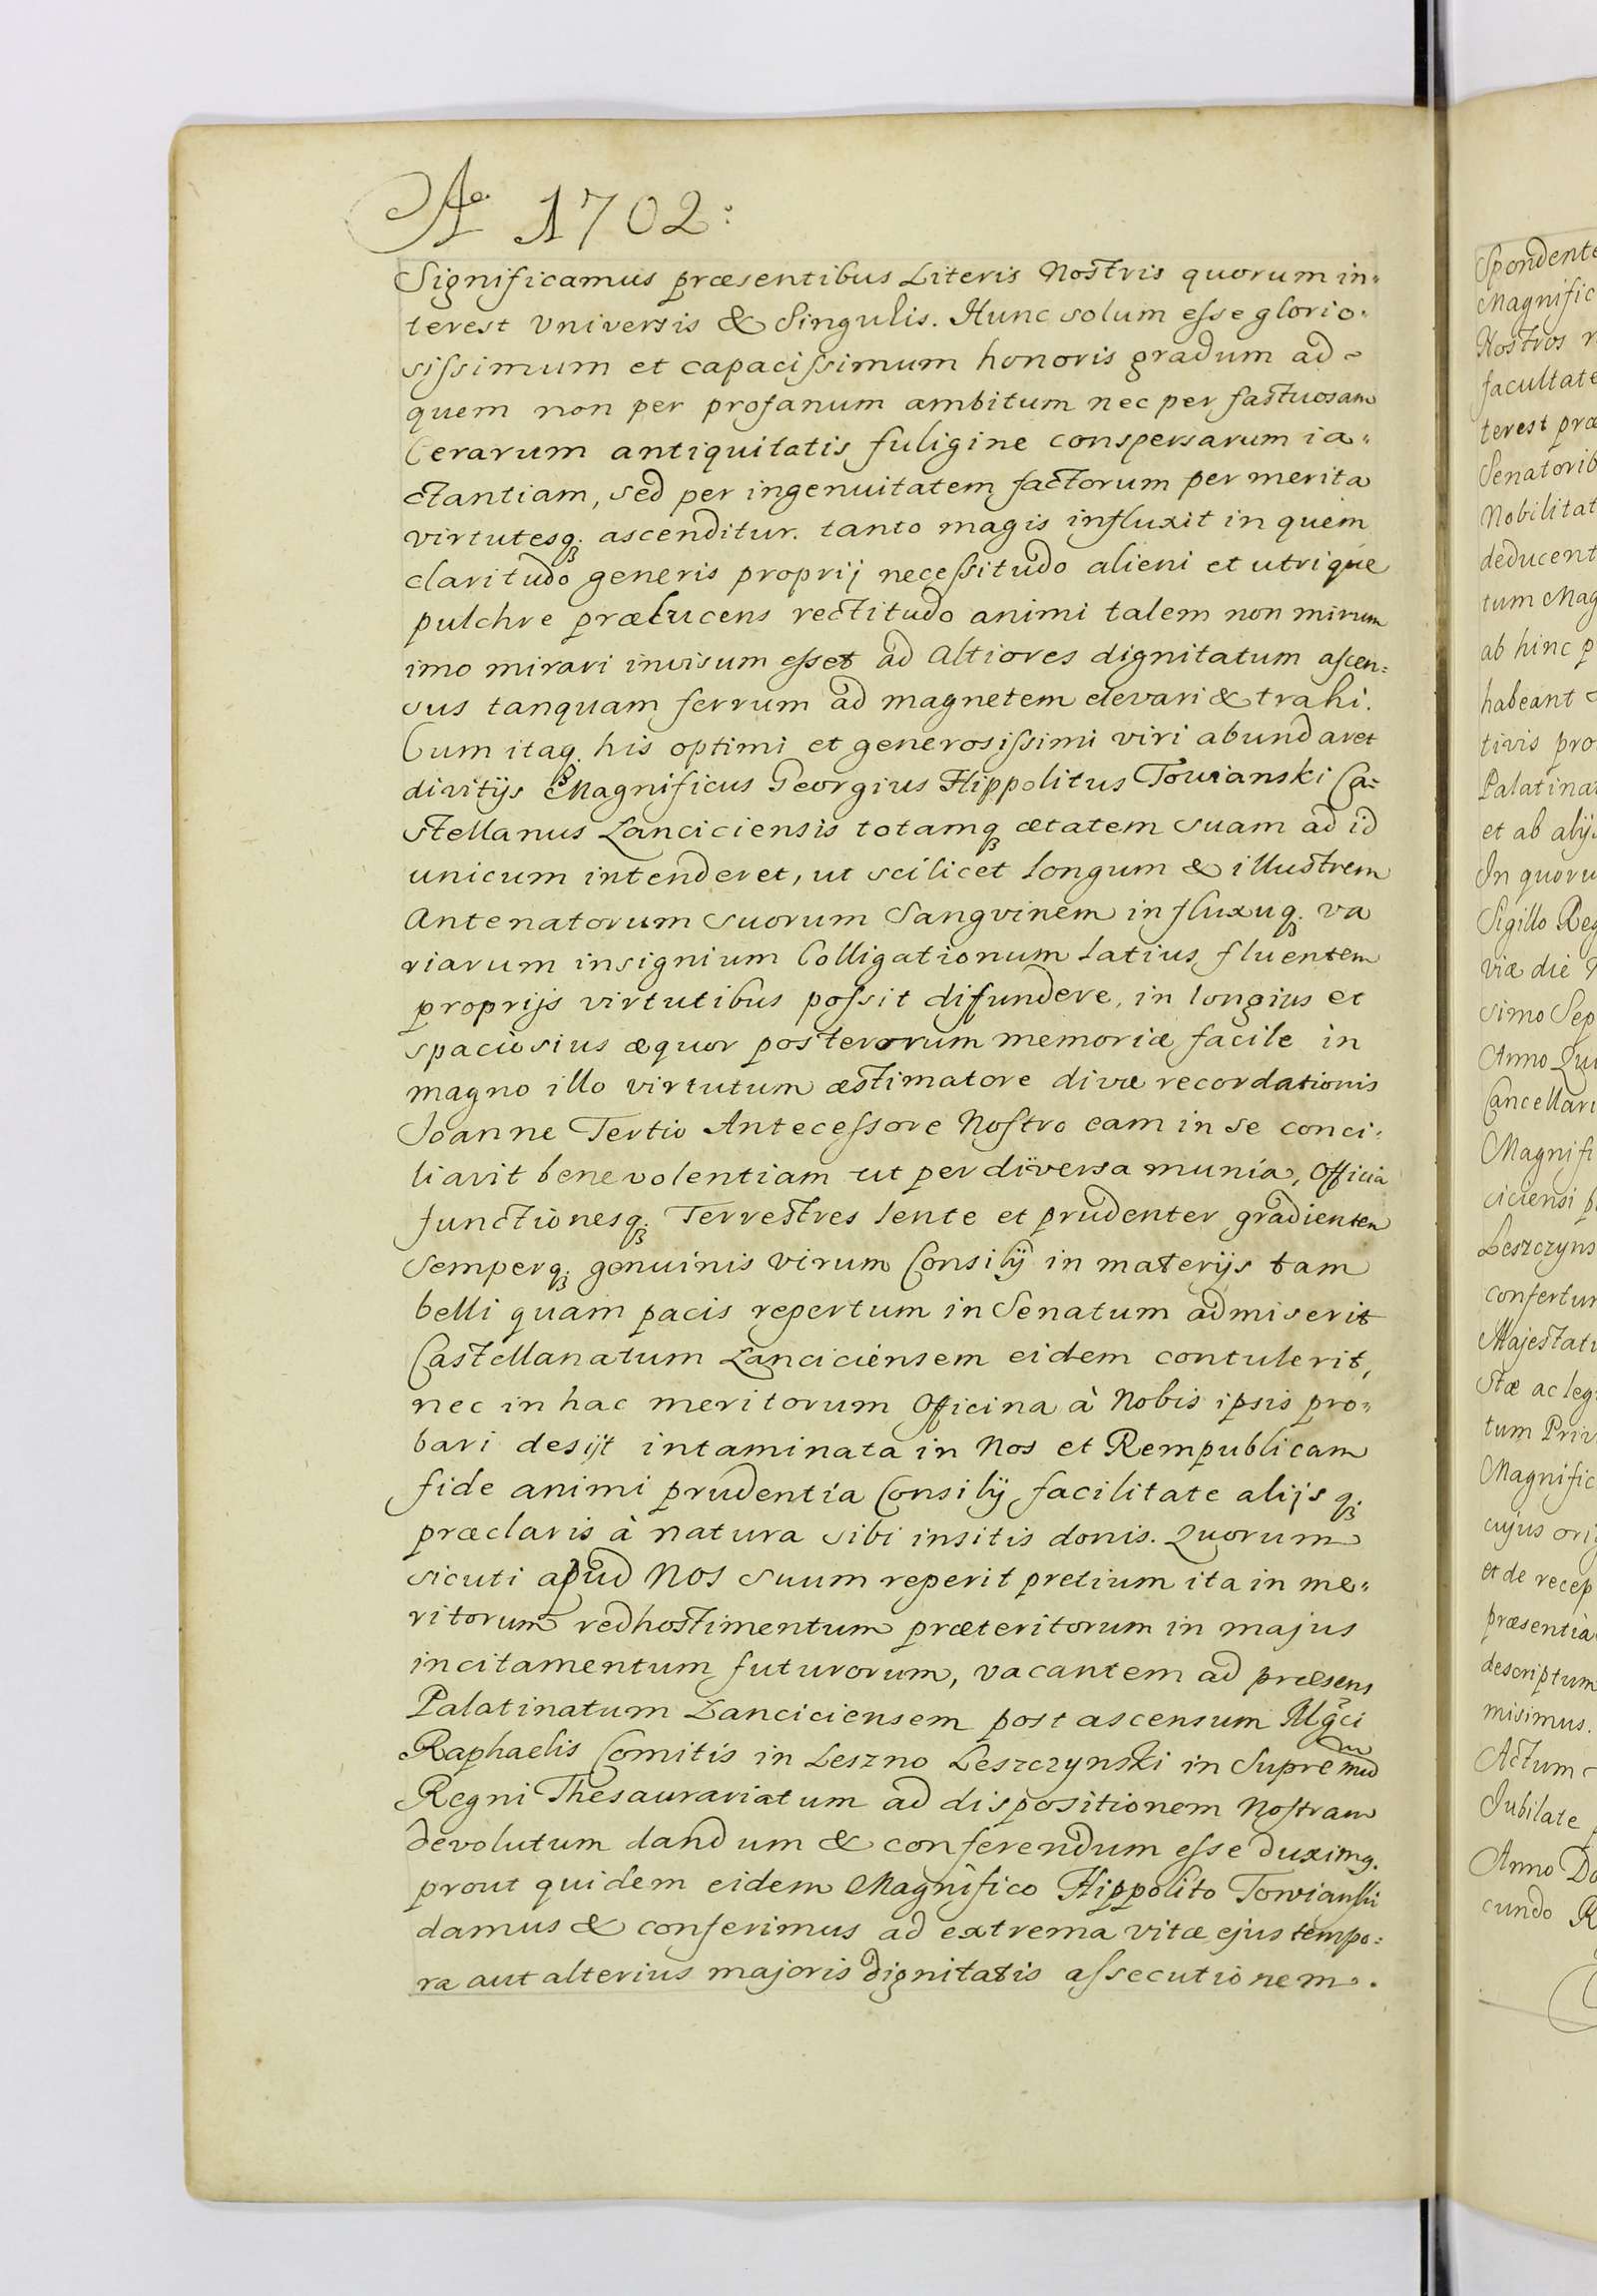 Ao 1702:
Significamus præsentibus Literis Nostris quorum in=
terest Universis & Singulis. Hunc solum esse glorio=
sissimum et capacissimum honoris gradum ad
quem non per profanum ambitum nec per fastuosam
Cerarum antiquitatis fuligine conspersarum ia=
ctantiam, sed per ingenuitatem factorum per merita
virtutesq. ascenditur. tanto magis influxit in quem
claritudo generis proprij necessitudo alieni et utrique
pulchre prælucens rectitudo animi talem non mirum
imo mirari invisum esset ad Altiores dignitatum ascen=
sus tanquam ferrum ad magnetem elevari & trahi.
Cum itaq. his optimi et generosissimi viri abundaret
divitijs Magnificus Georgius Hippolitus Towianski Ca=
stellanus Lanciciensis totamq ætatem suam ad id
unicum intenderet, ut scilicet longum & illustrem
Antenatorum suorum Sangvinem influxuq. va
riarum insignium Colligationum latius fluentem
proprijs virtutibus possit difundere, in longius et
spaciosius æquor posterorum memoriæ facile in
magno illo virtutum æstimatore divæ recordationis
Joanne Tertio Antecessore Nostro eam in se conci=
liavit benevolentiam ut per diversa munia, Officia
functionesq. Terrestres lente et prudenter gradientem
Semperq. genuinis virum Consilij in materijs tam
belli quam pacis repertum in Senatum admiserit
Castellanatum Lanciciensem eidem contulerit,
nec in hac meritorum Officina à Nobis ipsis pro=
bari desijt intaminata in Nos et Rempublicam
fide animi prudentia Consilij facilitate alijsq.
præclaris à natura sibi insitis donis. Quorum
sicuti apud Nos suum reperit pretium ita in me=
ritorum redhostimentum præteritorum in majus
incitamentum futurorum, vacantem ad præsens
Palatinatum Lanciciensem post ascensum Mgci
Raphaelis Comitis in Leszno Leszczynski in Supremum
Regni Thesaurariatum ad dispositionem Nostram
devolutum dandum & conferendum esse duximq.
prout quidem eidem Magnifico Hippolito Towianski
damus & conferimus ad extrema vitæ ejus tempo=
ra aut alterius majoris dignitatis assecutionem.
Spondente
Magnific
Nostros
facultate
terest præ
Senatorib
Nobilitat
deducent
tum Mag
ab hinc p
habeant
tivis pro
Palatina
et ab alij
In quoru
Sigillo Reg
viæ die
simo Sep
Anno Qui
Cancellari
Magnifi
ciciensi p
Leszczyns
confertur
Majestati
stæ ac leg
tum Priv
Magnific
cujus ori
et de recep
præsentia
descriptum
misimus.
Actum
Jubilate
Anno Do
cundo R